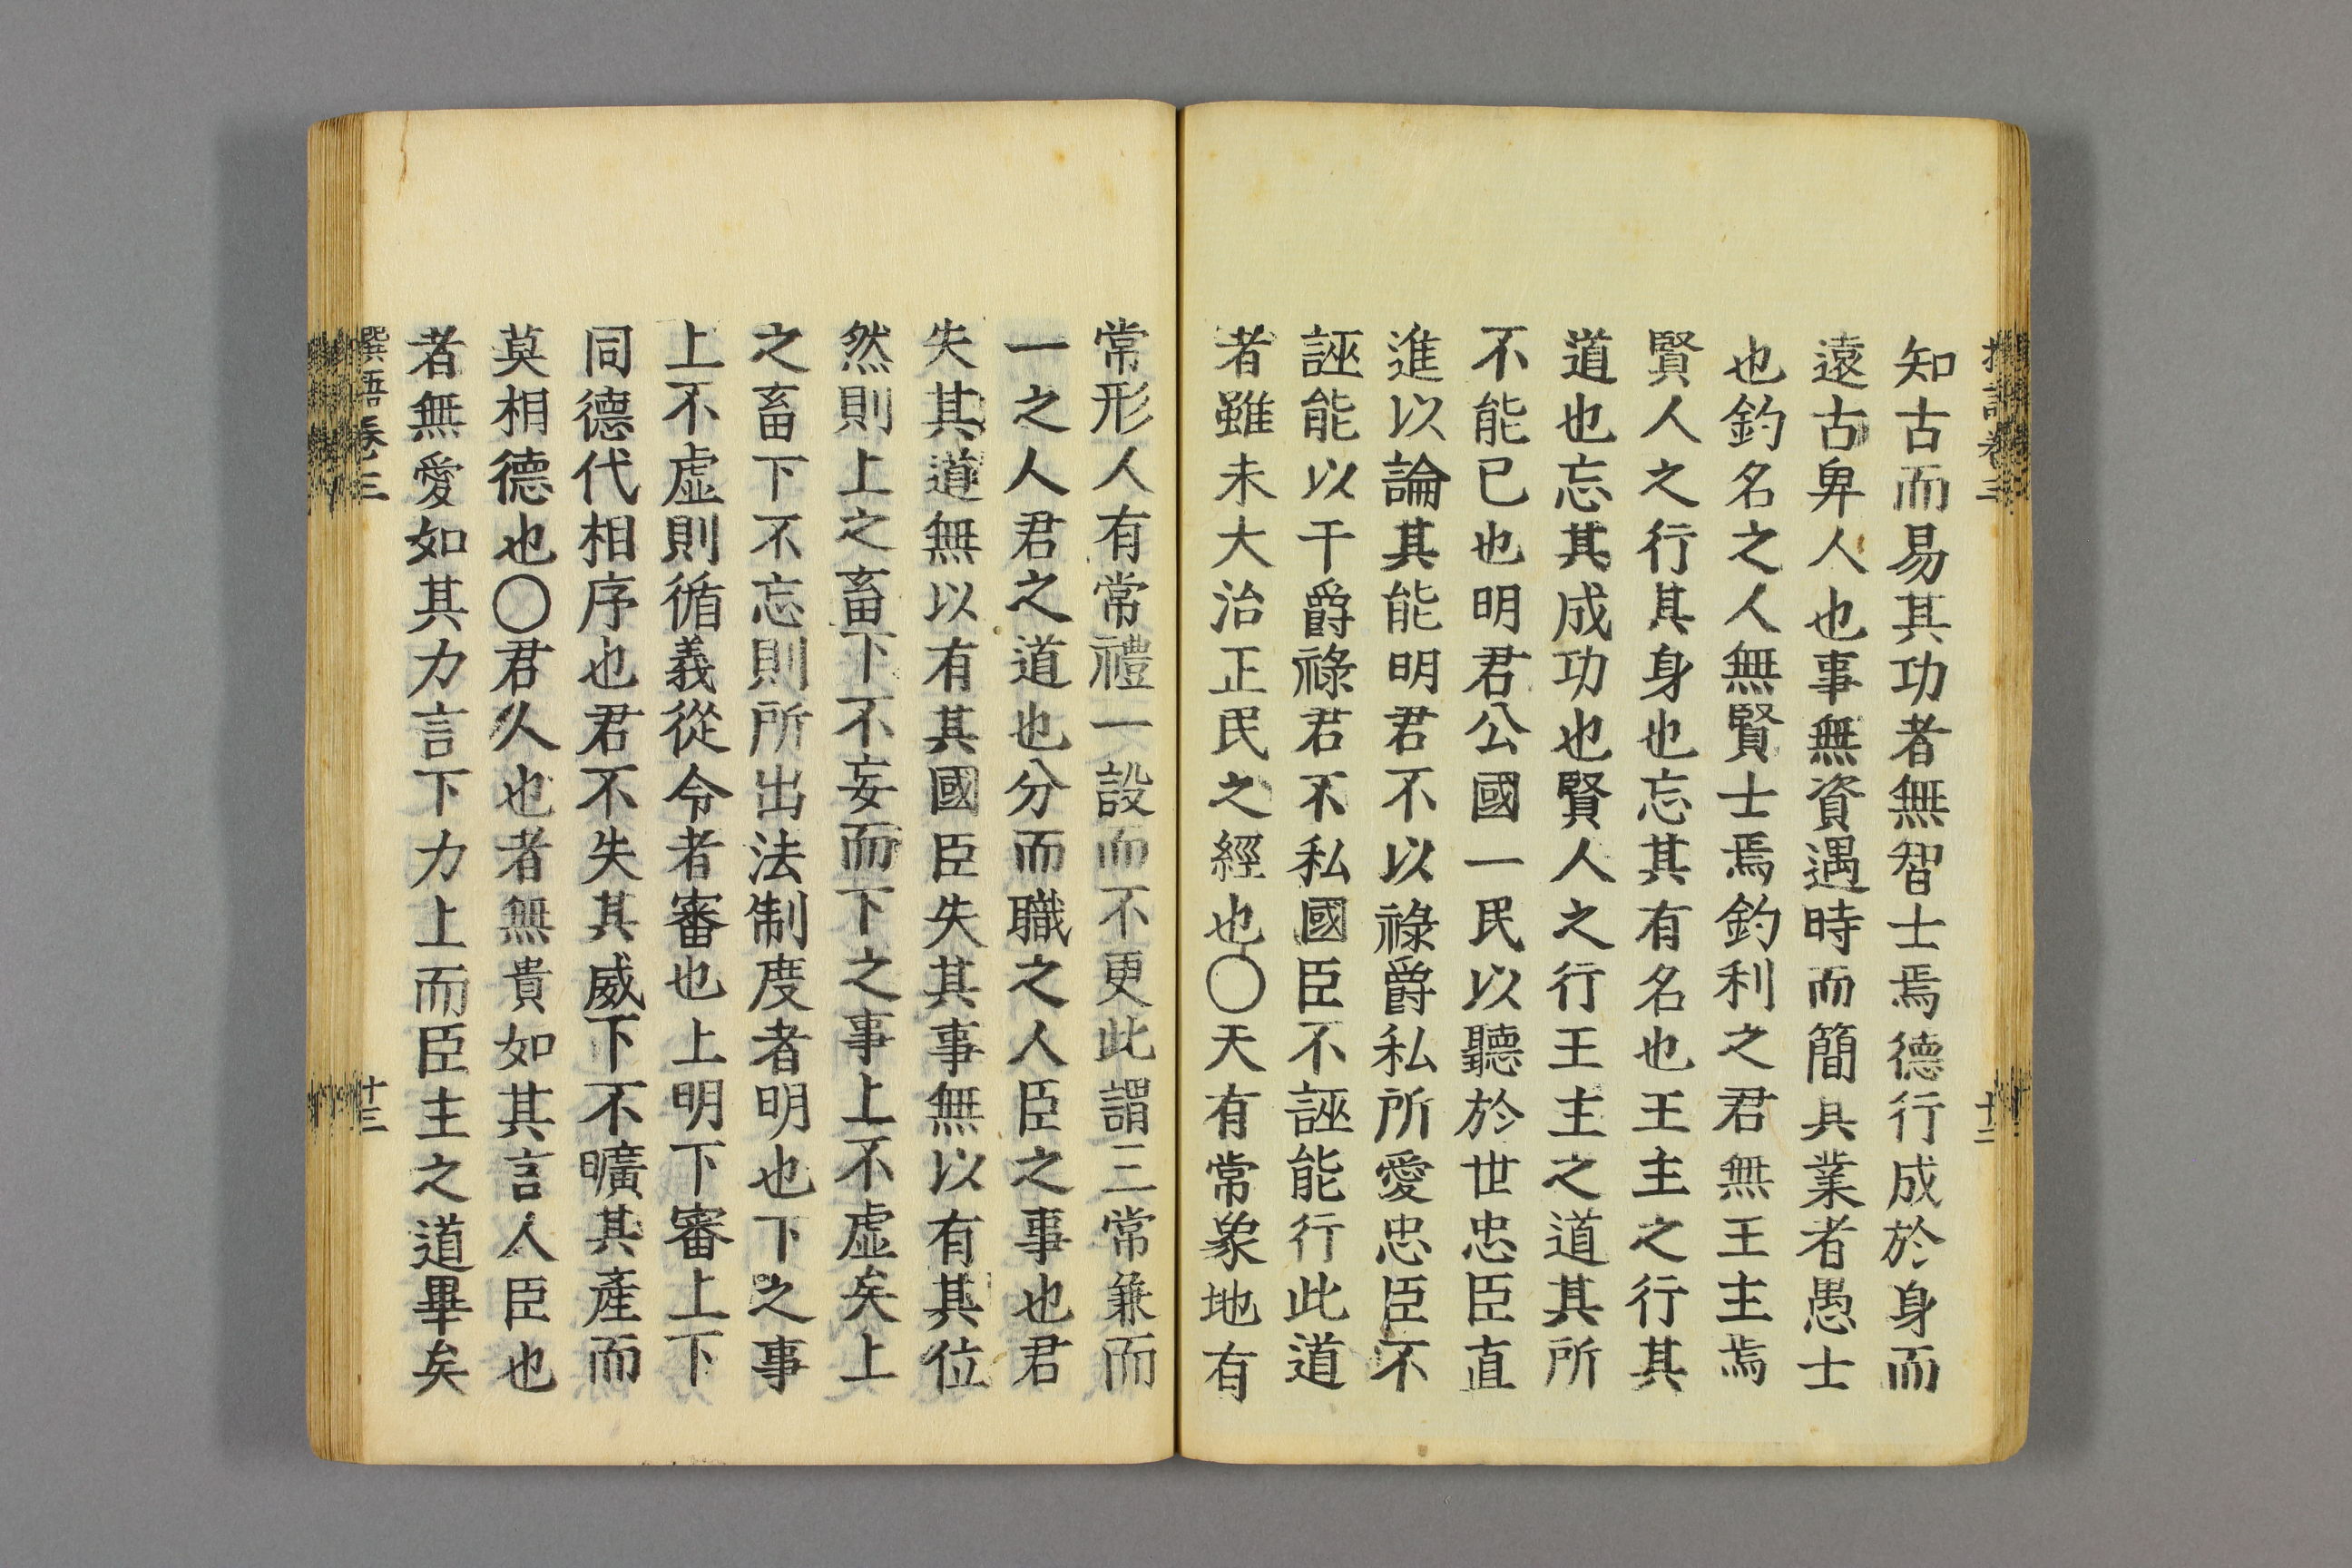 知古而易其功者無智士焉德行成於身而
遠古卑人也事無資遇時而簡其業者愚士
也釣名之人無賢士焉釣利之君無王主焉
賢人之行其身也忘其有名也王主之行其
道也忘其成功也賢人之行王主之道其所
不能已也明君公國一民以聽於世忠臣直
進以論其能明君不以祿爵私所愛忠臣不
誣能以干爵祿君不私國臣不誣能行此道
者雖未大治正民之經也〇天有常象地有
常形人有常禮一設而不更此謂三常兼而
一之人君之道也分而職之人臣之事也君
失其道無以有其國臣失其事無以有其位
然則上之畜下不妄而下之事上不虛矣上
之畜下不忘則所出法制度者明也下之事
上不虛則循義從令者審也上明下審上下
同德代相序也君不失其威下不曠其產而
莫相德也〇君久也者無貴如其言人臣也
者無愛如其力言下力上而臣主之道畢矣
卷三
十三